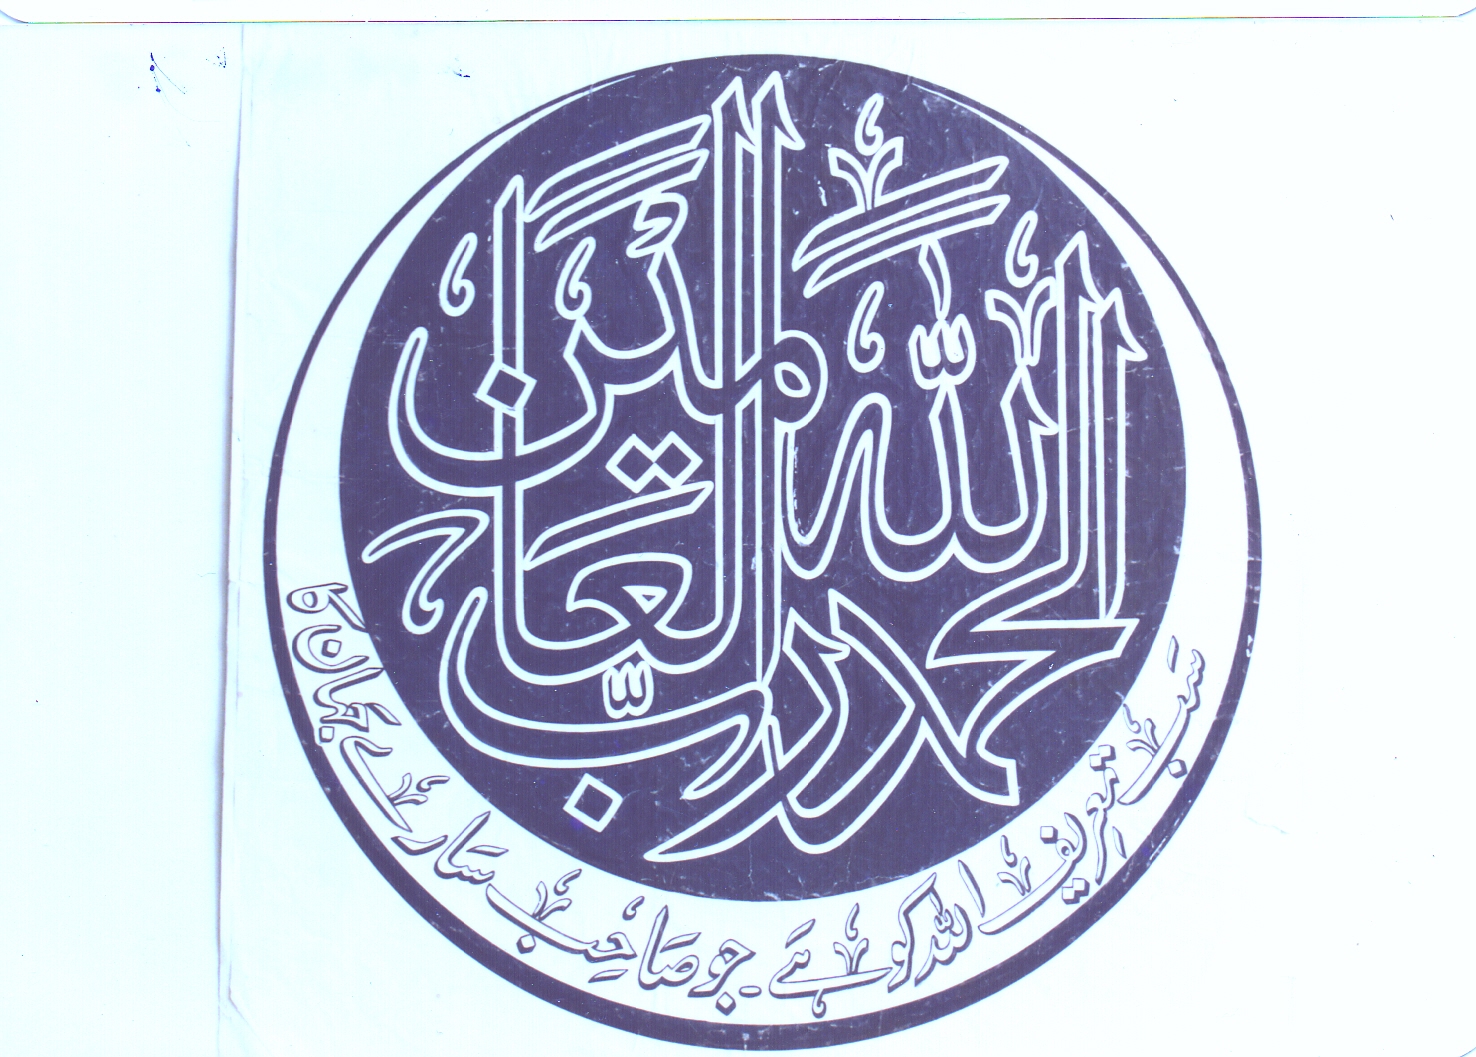 الحمد لله رب العالمين
سب تعریف اللہ کو ہے۔ جو صاحب سارے جہان کا